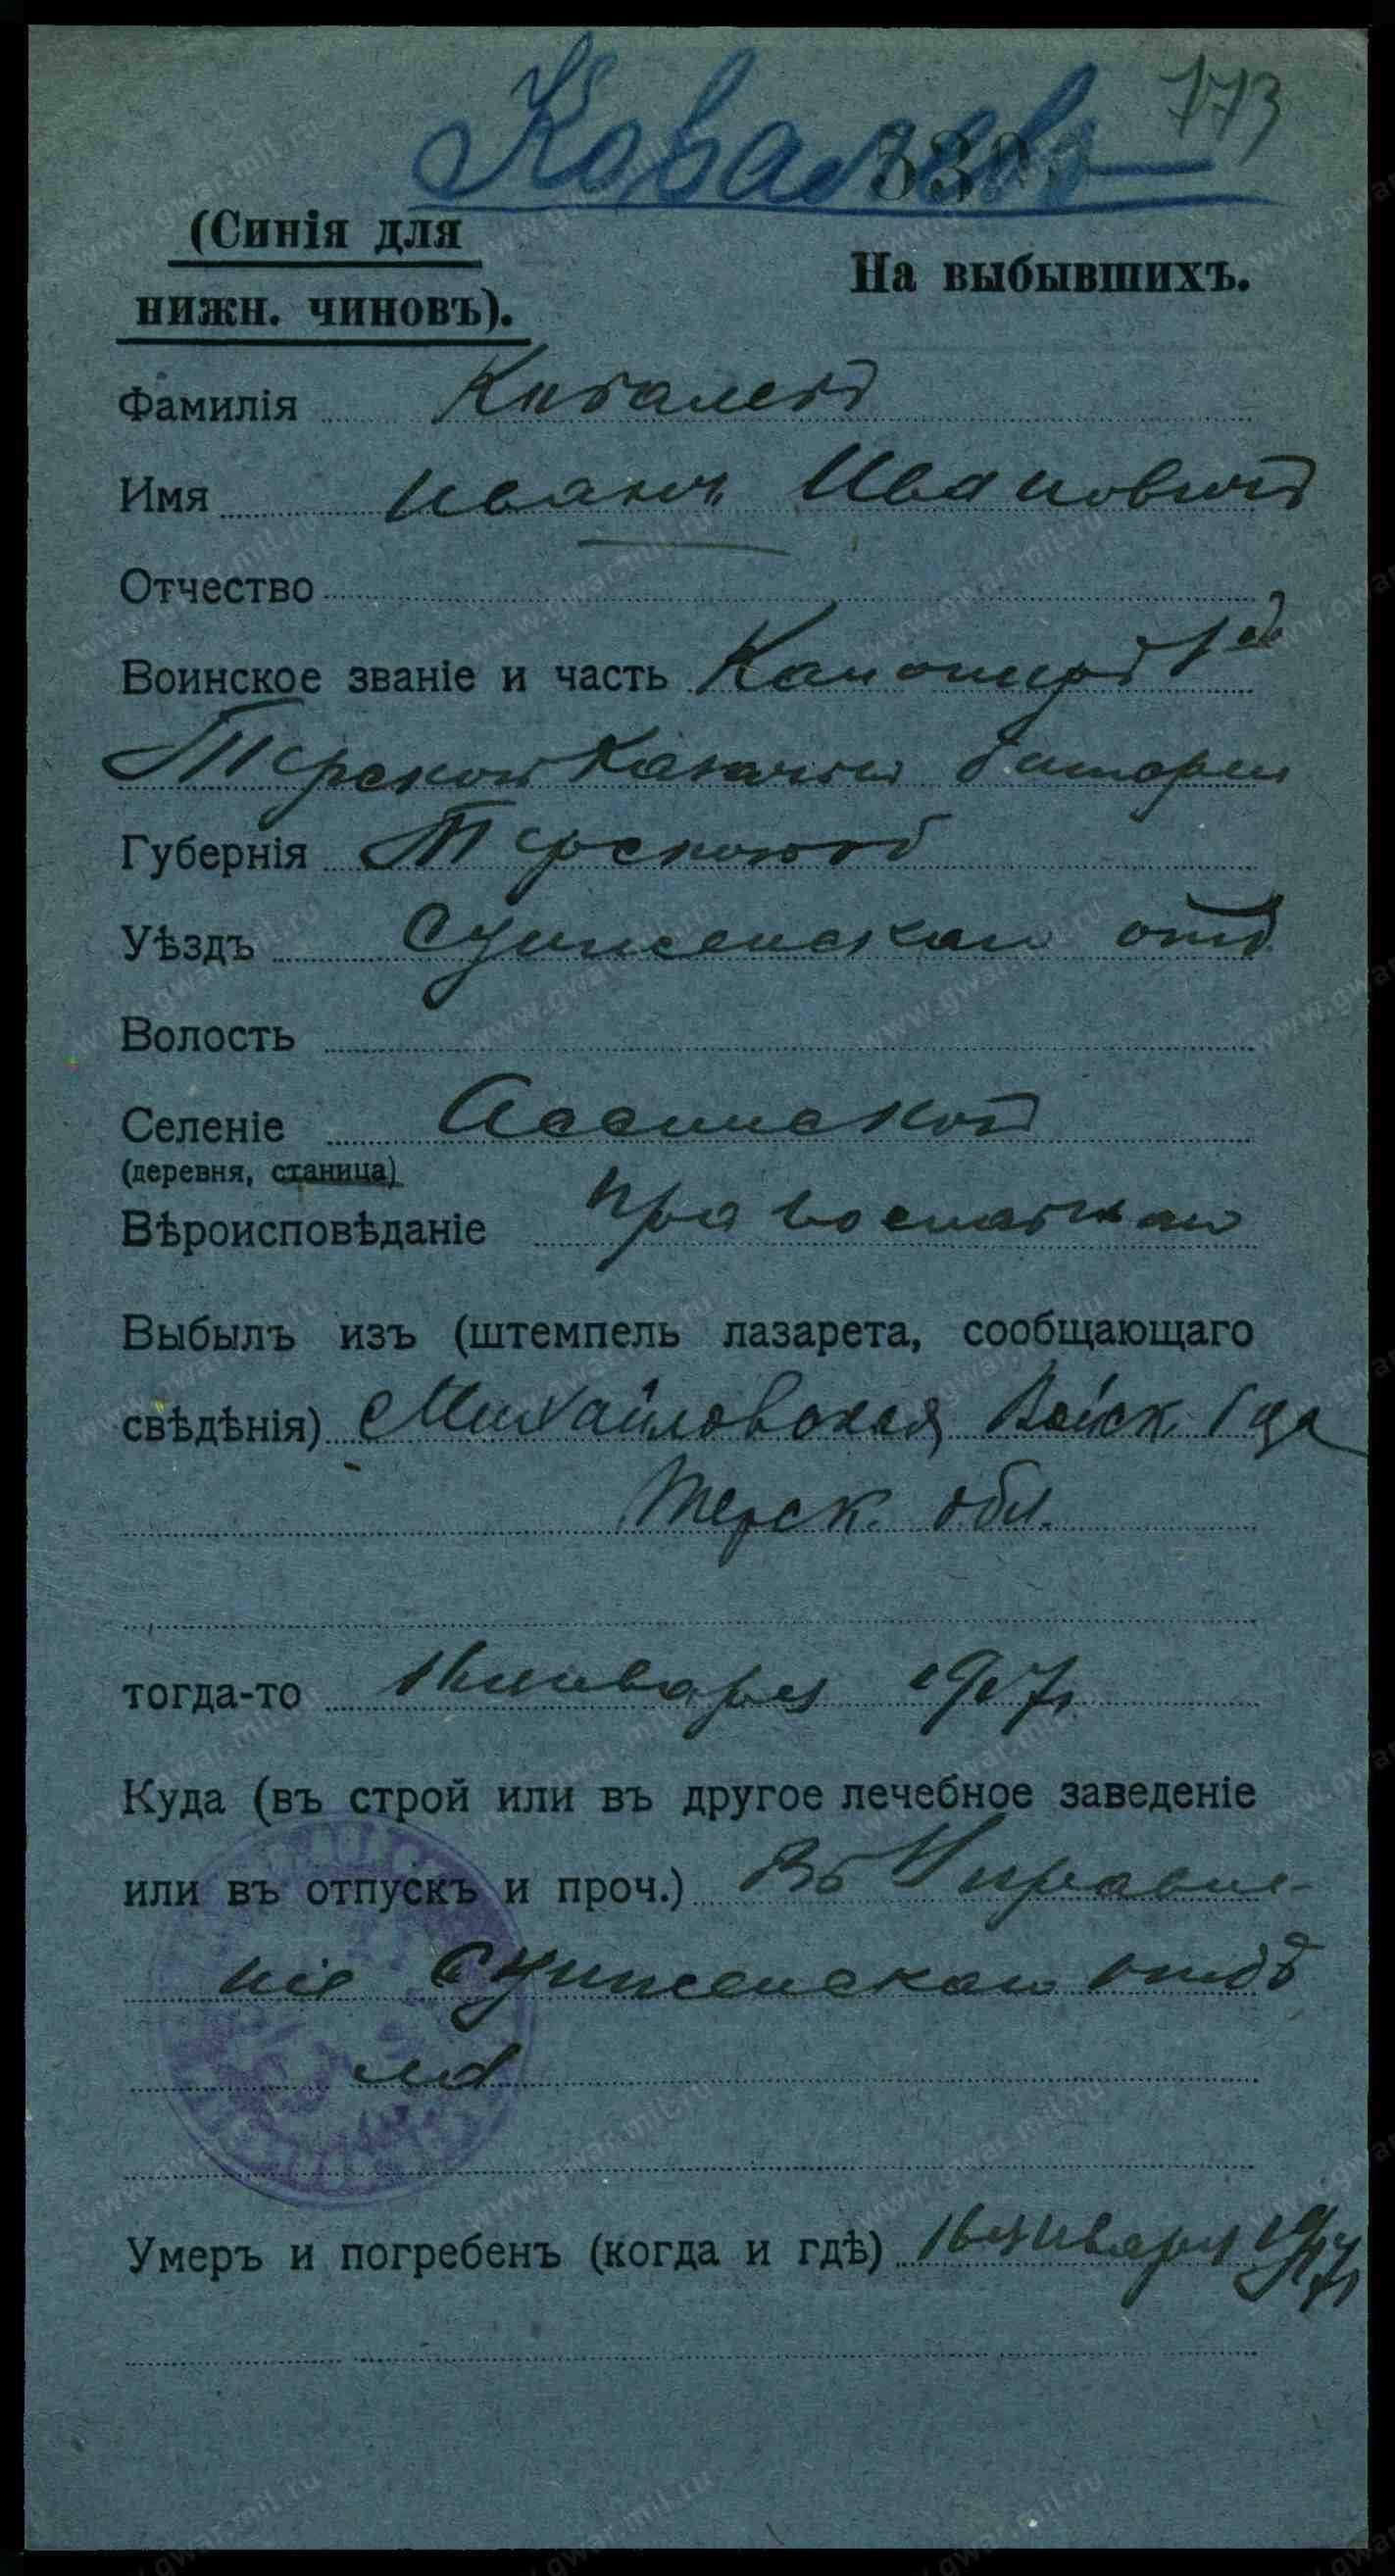 Ковалевъ
773
(Синія для
нижн. чиновъ).
На выбывшихъ.
Фамилія Ковалевъ
Имя Иванъ Ивановичъ
Отчество
Воинское званіе и часть Канониръ 1й
Терской Казачьей батареи
Губернія Терской об
Уѣздъ Сунженскаго отд
Волость
Селеніе Ассинской
(деревня, станица)
Вѣроисповѣданіе православнаго
Выбылъ изъ (штемпель лазарета, сообщающаго
свѣдѣнія) Михайловская Войск.
Терск. обл.
тогда-то 16 января 1917 г.
Куда (въ строй или въ другое лечебное заведеніе
или въ отпускъ и проч.) Въ Управле-
ніе Сунженскаго отдѣ
ла
Умеръ и погребенъ (когда и гдѣ) 16 января 1917 г.
www.gwar.mil.ru